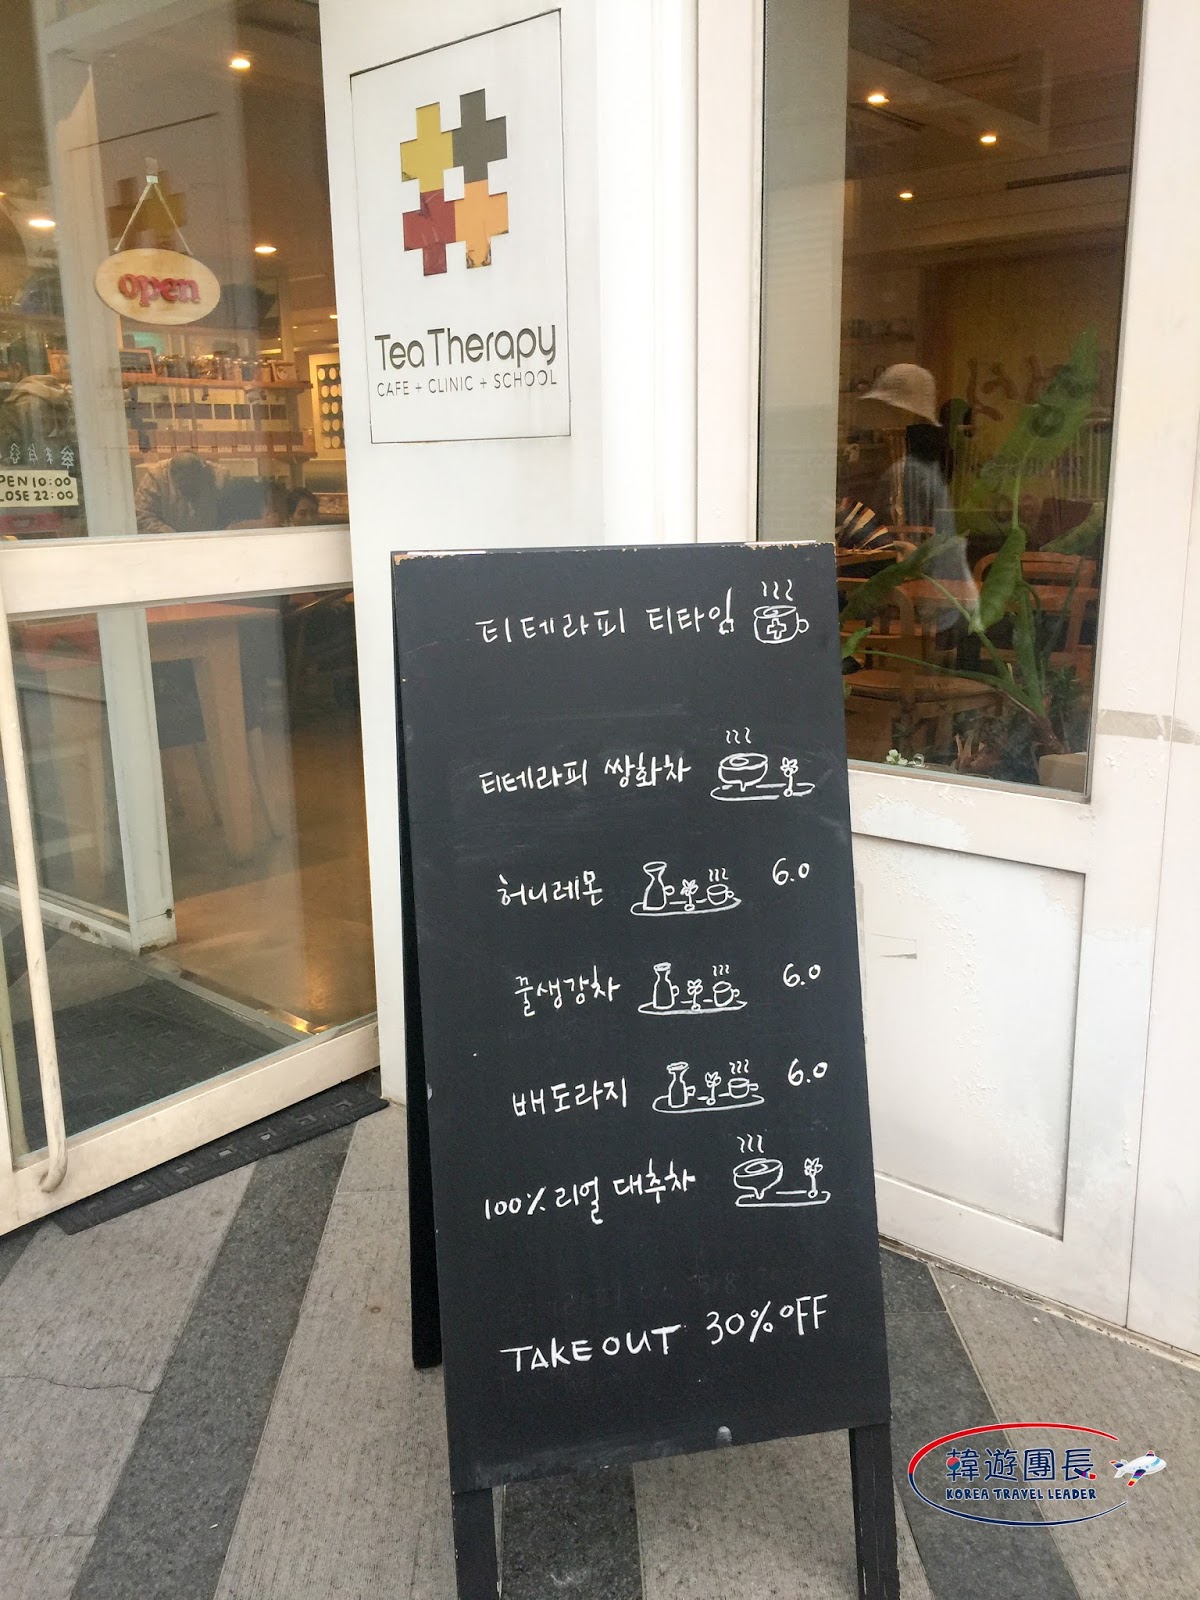 open
Tea Therapy
CAFE + CLINIC + SCHOOL
PEN 10:00
LOSE 22:00
티테라피 티타임
티테라피 쌍화차
허니레몬 6.0
꿀생강차 6.0
배도라지 6.0
100% 리얼 대추차
TAKE OUT 30% OFF
韓遊團長
KOREA TRAVEL LEADER